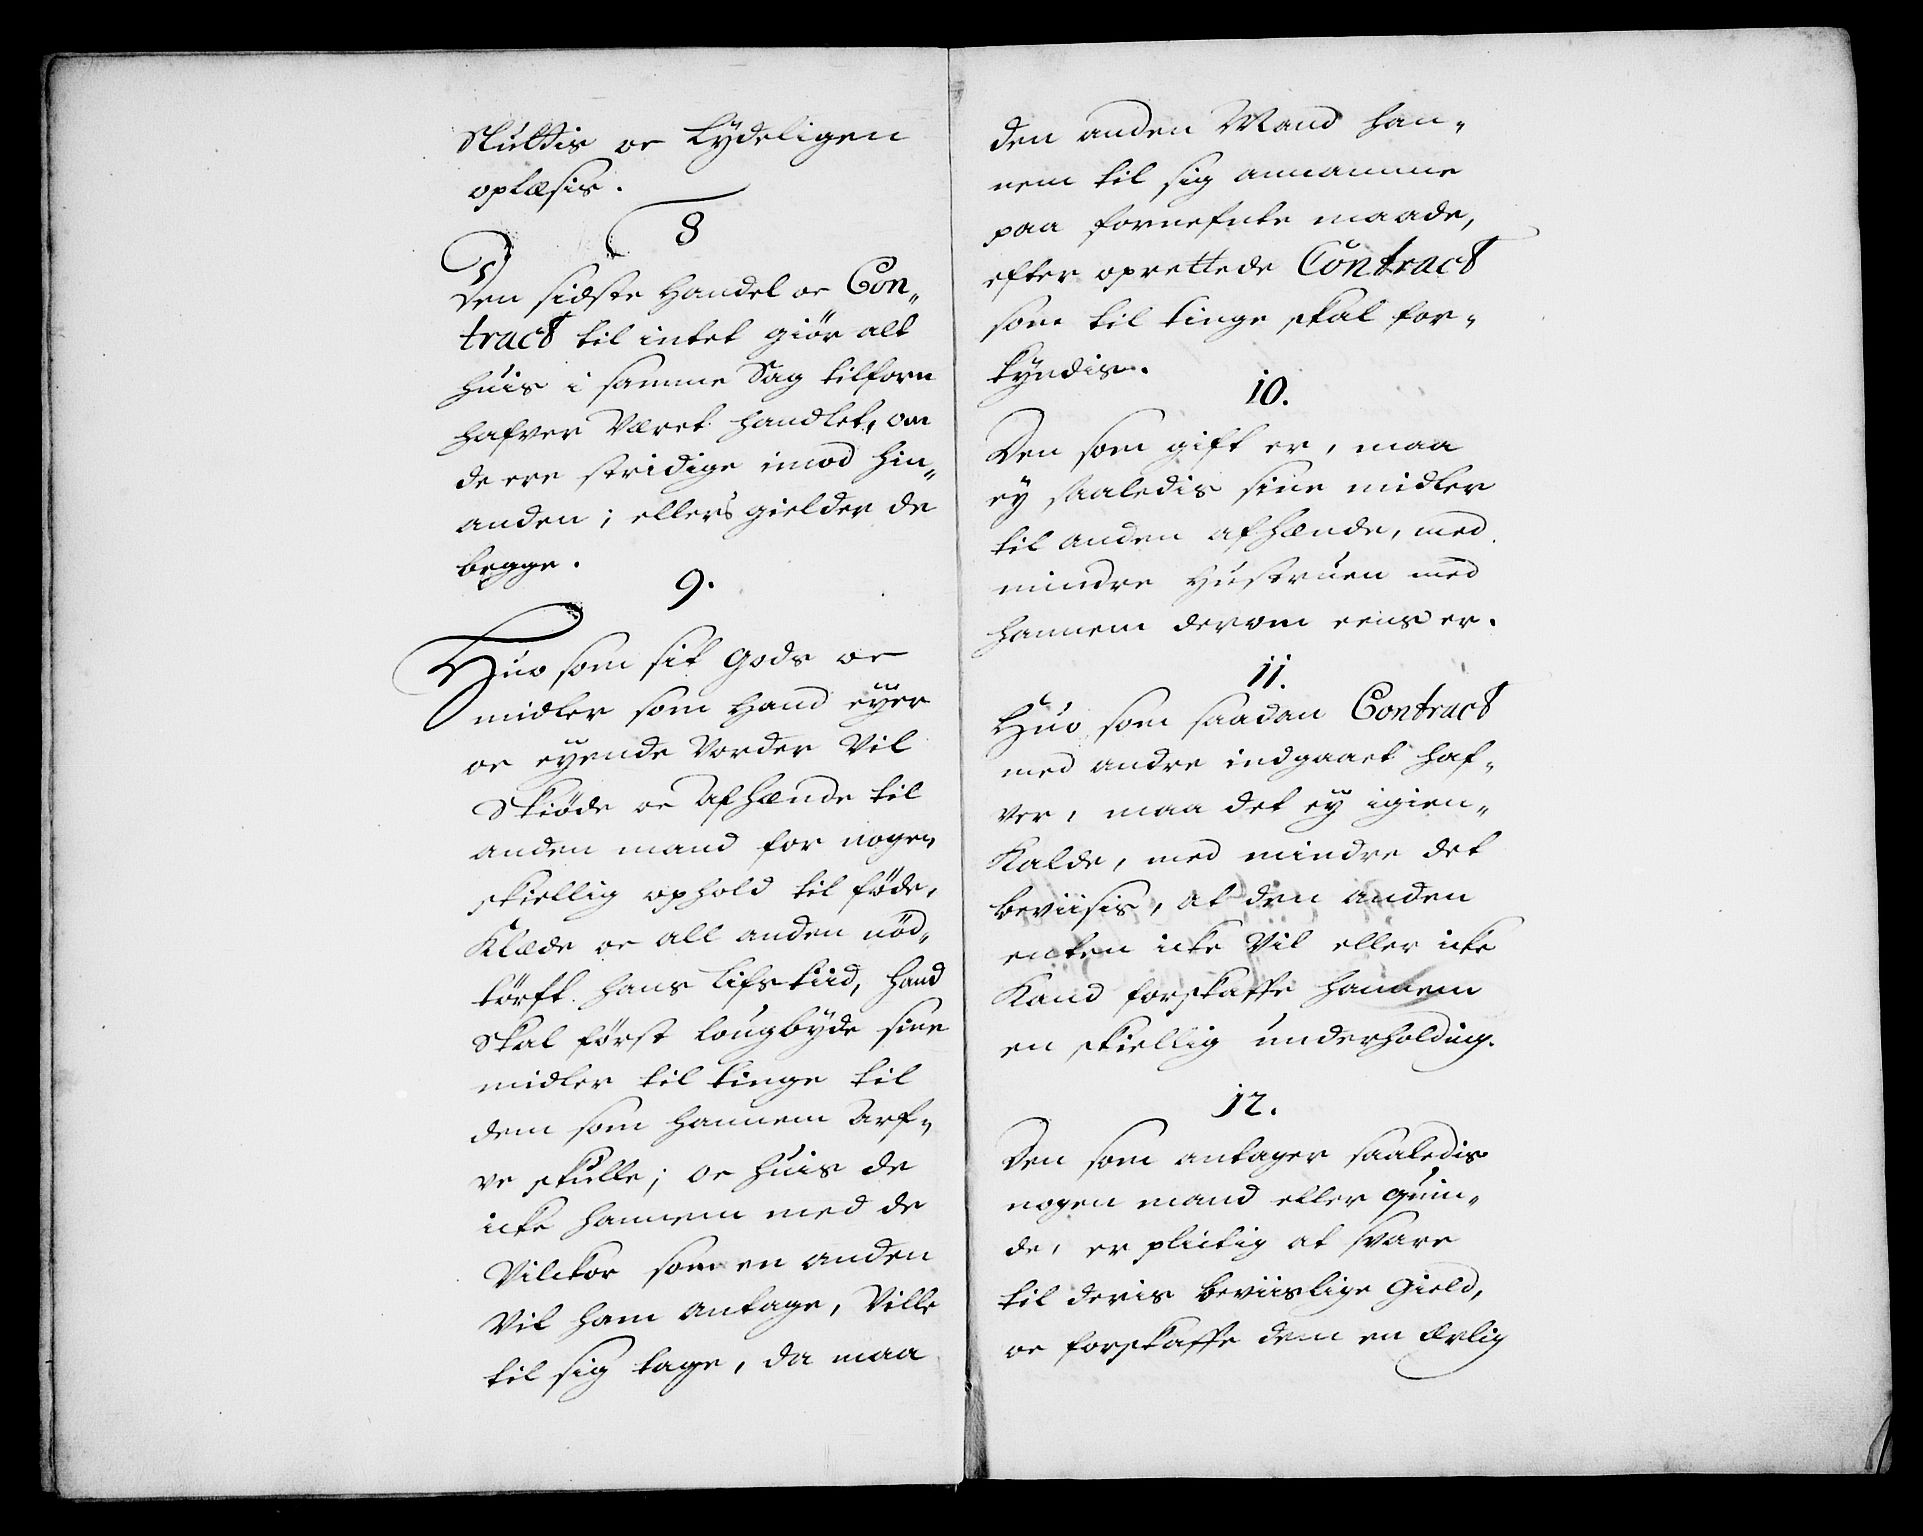 Sluttis oc Lydeligen
oplæsis.
8
Den sidste Handel oc Con„
tract til intet giör alt
huis i samme Sag tilforn
hafver Været handlet, om
de ere stridige imod hin„
anden; ellers gielder de
begge.
9.
Huo som sit gods oc
midler som Hand eÿer
oc eÿende Vorder Vil
Skiöde oc Afhænde til
anden mand for nogen
skiellig ophold til föde,
Klæde oc all anden nöd„
törft hans Lifs tiid, hand
Skal först lougbÿde sine
midler til tinge til
dem som hannem Arf„
ve skulle; oc huis de
icke hannem med de
Vilckor som en anden
Vil ham antage, Ville
til sig tage, da maa
den anden Mand han„
nem til sig annamme
paa fornefnte maade,
efter oprettede Contract
som til tinge skal for„
kyndis.
10.
Den som gift er, maa
eÿ saaledis sine midler
til anden afhænde, med
mindre Hustruen med
hannem derom eens er.
11.
Huo som saadan Contract
med andre indgaaet haf„
ver, maa det eÿ igien„
Kalde, med mindre det
beviisis, at den anden
enten icke Vil eller icke
Kand forskaffe hannem
en skiellig underholding.
12.
Den som antager saaledis
nogen mand eller quin„
de, er plictig at svare
til deris beviislige Gield,
oc forskaffe dem en ærlig